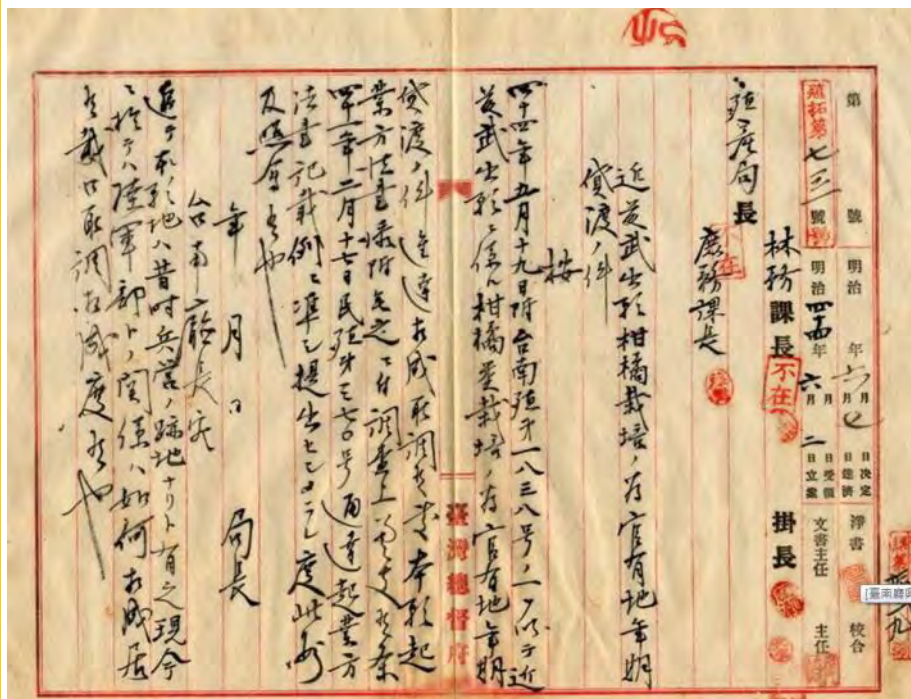 第 號
殖拓第七三號
明治 年六月七日決定
明治四十四年六月二日立案
日發濟
月 日受領
淨書 校合
文書主任 主任
殖產局長
林務課長 不在
掛長
庶務課長
近藤武出願柑橘栽培ノ為官有地年期
貸渡ノ件
按
四十四年五月十九日附台南殖第一八三八号ノ一ヲ以テ近
藤武出願ニ係ル柑橘栽培ノ為官有地年期
貸渡ノ件進達相成取調候處本願起
業方法書添附無之ニ付調査上
四十一年二月十七日民殖第三七〇号通達起業方
法書記載例ニ準シ提出
及照會候也
年 月 日 局長
台南廳長宛
追テ本願地ハ昔時兵營ノ跡地ナリト有之現今
ニ於テハ陸軍部トノ関係ハ如何相成居
候哉 取調相成度候也
臺灣總督府
[臺南廳